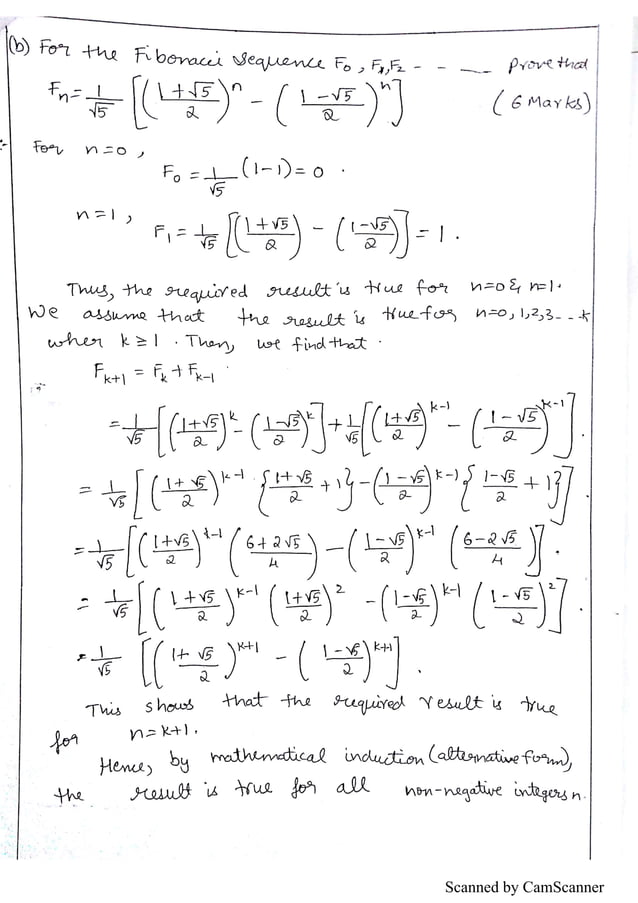 (b) For the Fibonacci sequence F₀, F₁, F₂ - - - — Prove that
Fₙ = 1/√5 [((1+√5)/2)ⁿ - ((1-√5)/2)ⁿ] (6 Marks)
:- For n=0,
F₀ = 1/√5 (1-1) = 0 .
n=1,
F₁ = 1/√5 [((1+√5)/2) - ((1-√5)/2)] = 1 .
Thus, the required result is true for n=0 & n=1.
We assume that the result is true for n=0,1,2,3- - k
wher k≥1 . Then, we find that .
Fₖ₊₁ = Fₖ + Fₖ₋₁ .
= 1/√5 [((1+√5)/2)ᵏ - ((1-√5)/2)ᵏ] + 1/√5 [((1+√5)/2)ᵏ⁻¹ - ((1-√5)/2)ᵏ⁻¹] .
= 1/√5 [((1+√5)/2)ᵏ⁻¹ {(1+√5)/2 + 1} - ((1-√5)/2)ᵏ⁻¹ {(1-√5)/2 + 1}]
= 1/√5 [((1+√5)/2)ᵏ⁻¹ ((6+2√5)/4) - ((1-√5)/2)ᵏ⁻¹ ((6-2√5)/4)] .
= 1/√5 [((1+√5)/2)ᵏ⁻¹ ((1+√5)/2)² - ((1-√5)/2)ᵏ⁻¹ ((1-√5)/2)²] .
= 1/√5 [((1+√5)/2)ᵏ⁺¹ - ((1-√5)/2)ᵏ⁺¹] .
This shows that the required result is true
for n=k+1.
Hence, by mathematical induction (alternative form),
the result is true for all non-negative integers n.
Scanned by CamScanner